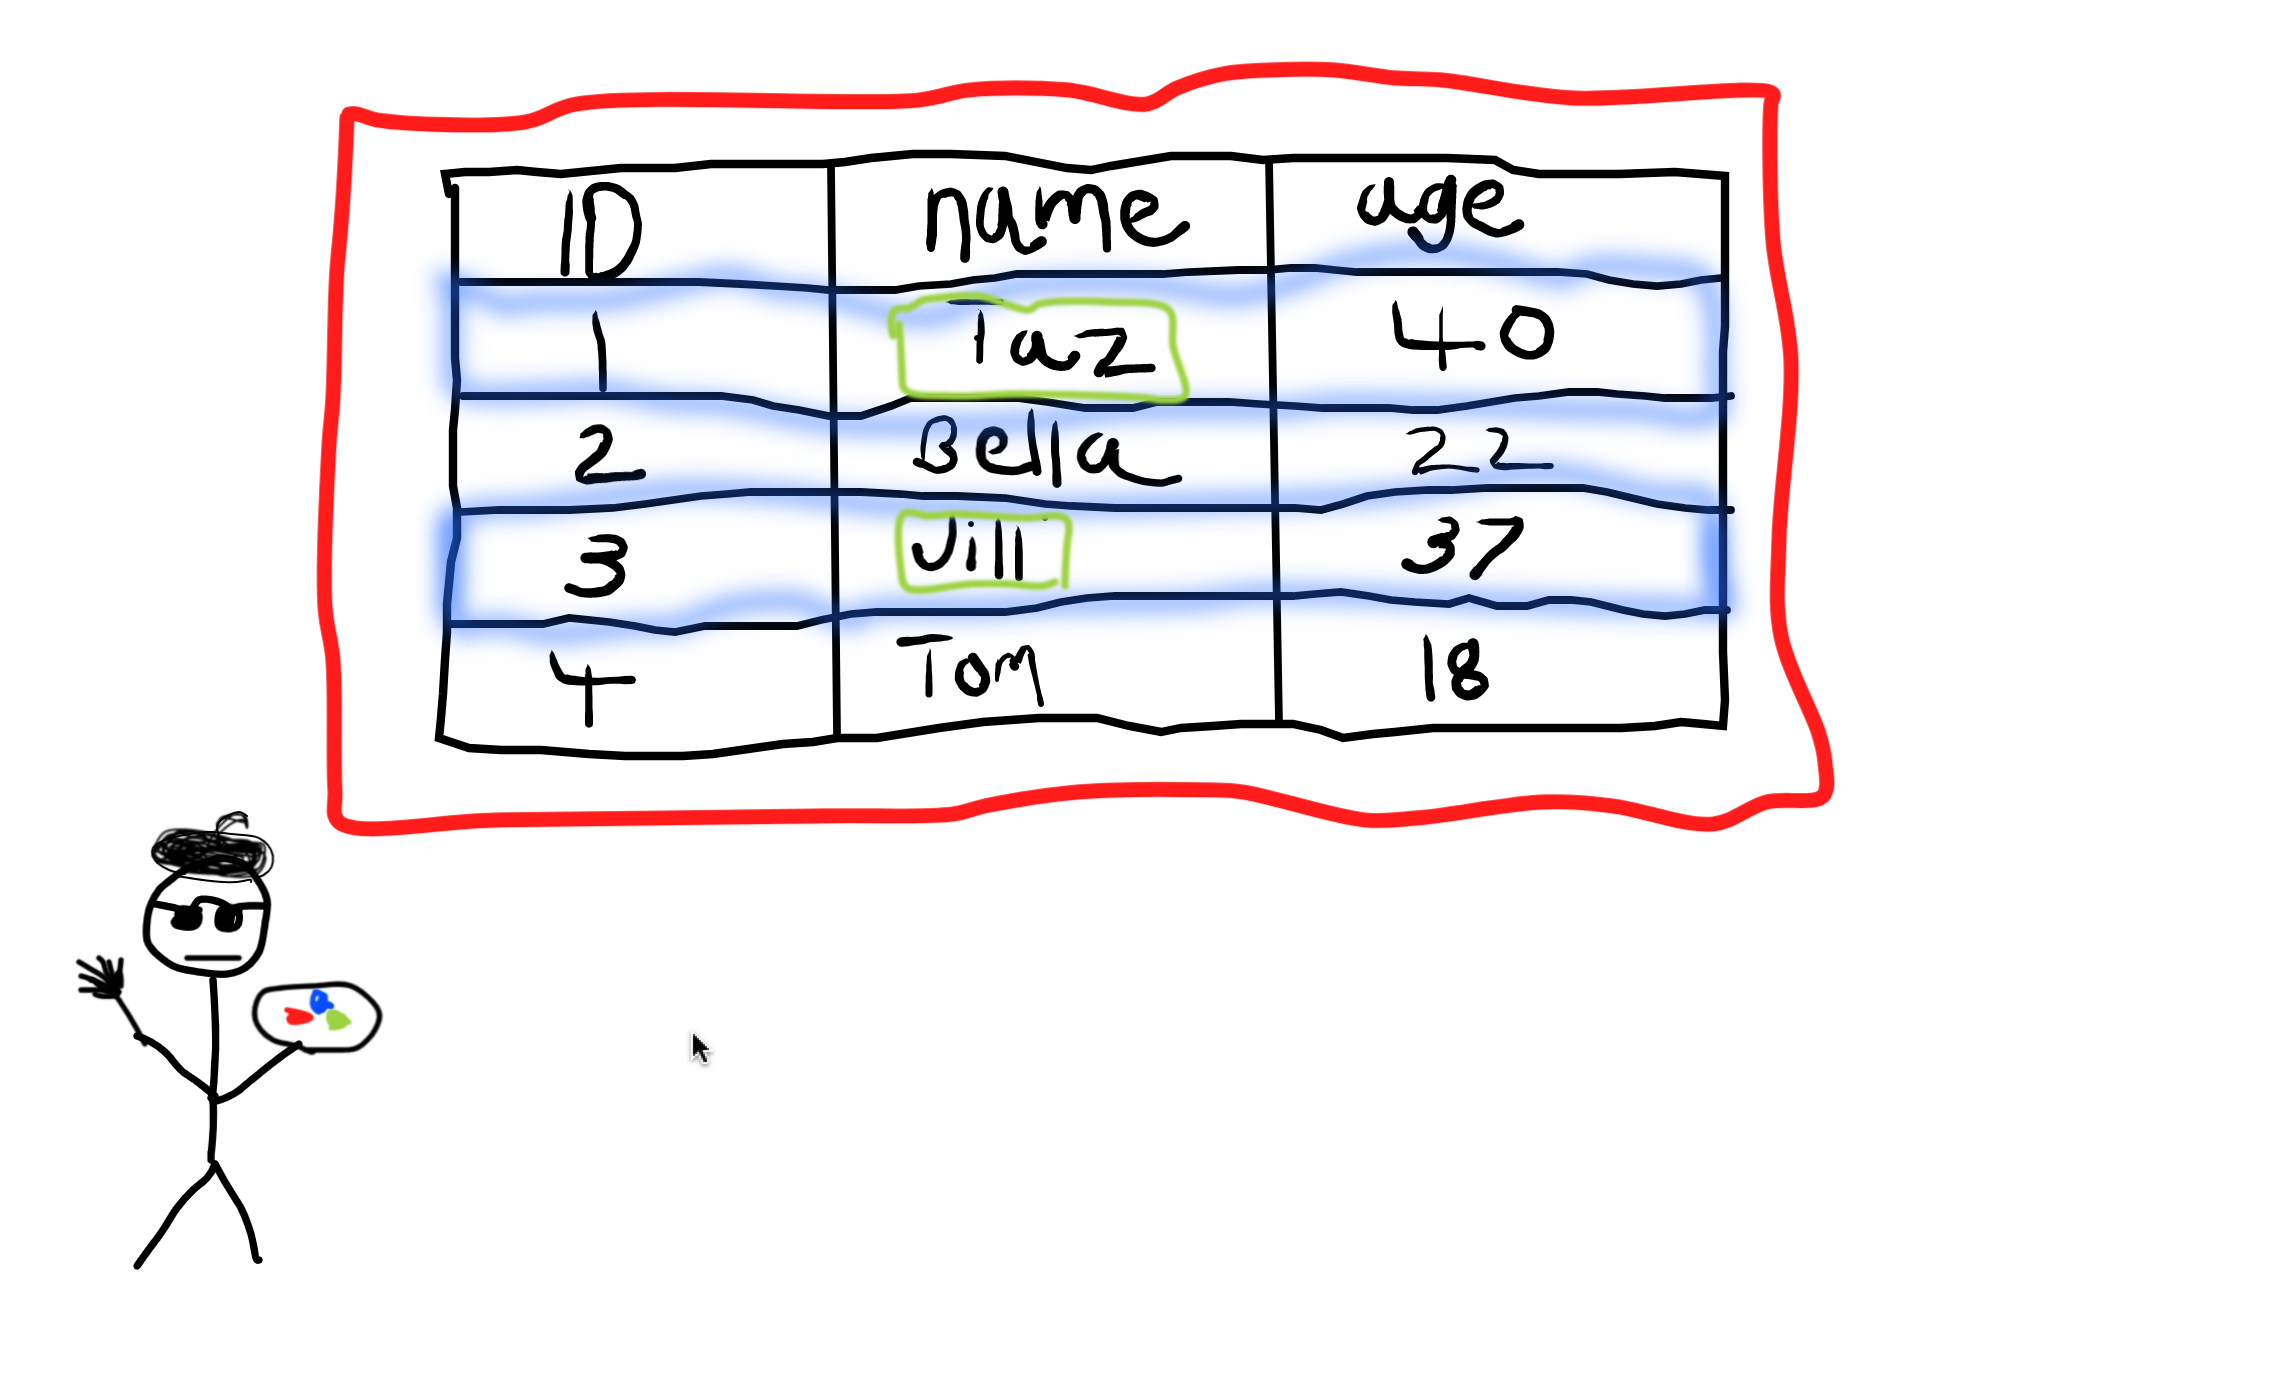 ID name age
1 Taz 40
2 Bella 22
3 Jill 37
4 Tom 18